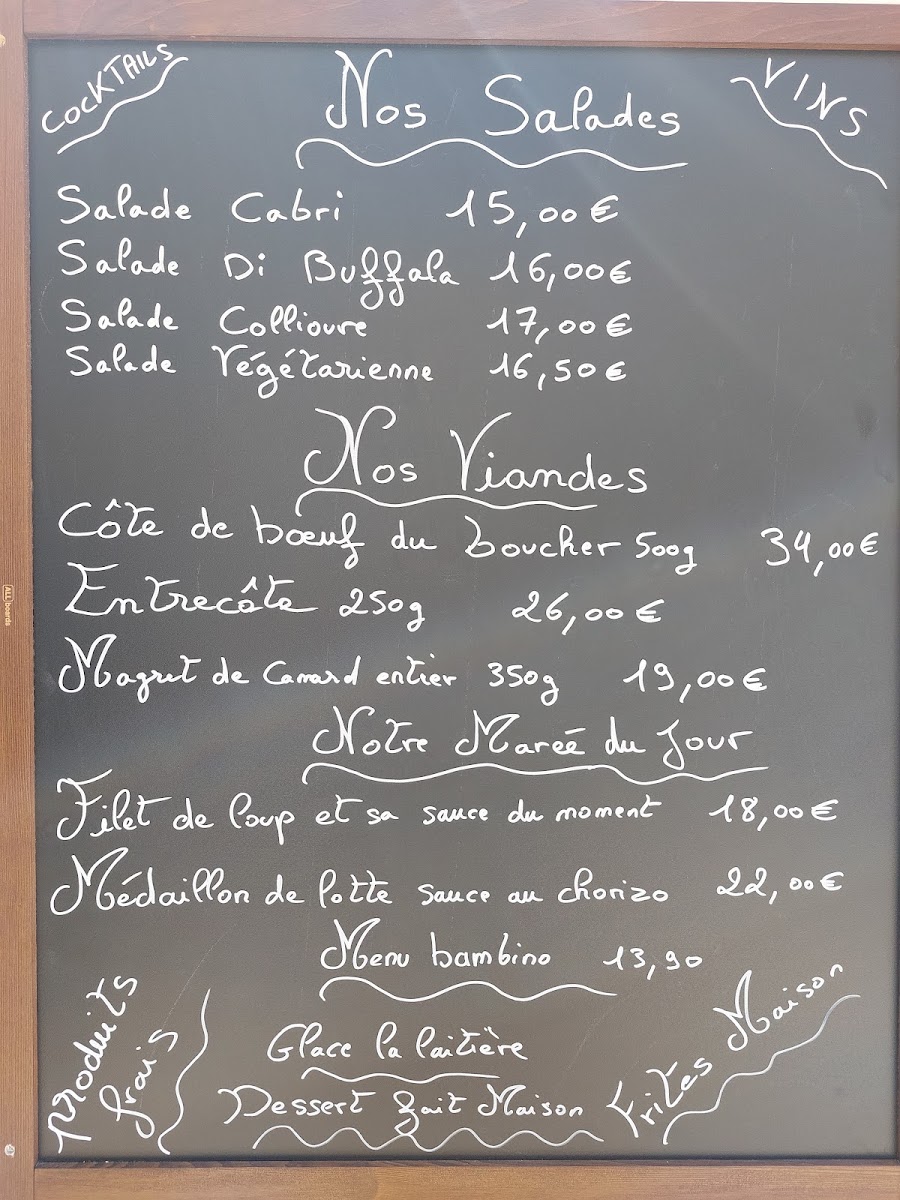 COCKTAILS
Nos Salades
VINS
Salade Cabri 15,00€
Salade Di Buffala 16,00€
Salade Collioure 17,00€
Salade Végétarienne 16,50€
Nos Viandes
Côte de bœuf du boucher 500g 34,00€
Entrecôte 250g 26,00€
Magret de Canard entier 350g 19,00€
Notre Mareé du Jour
Filet de loup et sa sauce du moment 18,00€
Médaillon de lotte sauce au chorizo 22,00€
Menu bambino 13,90
Produits
frais
Glace la laitière
Dessert fait Maison
Frites Maison
ALL boards